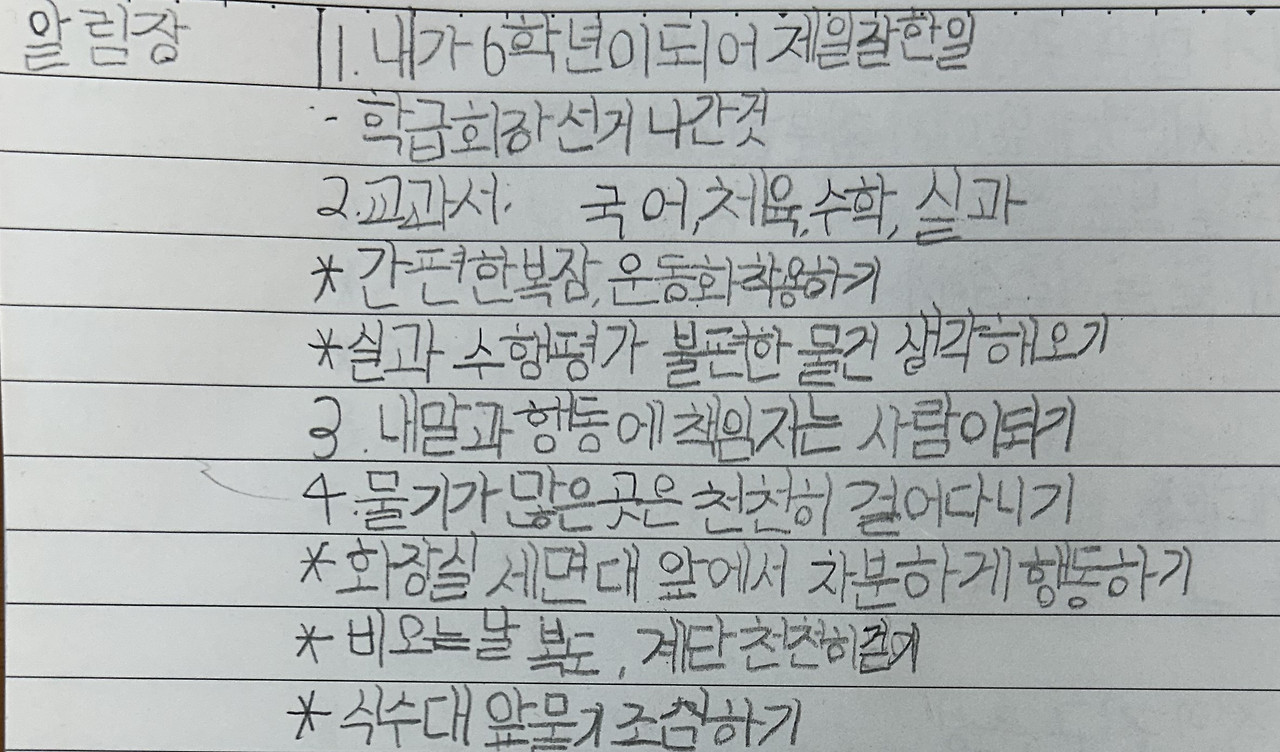 알림장 1. 내가 6학년이되어 제일잘한일
- 학급회장선거 나간것
2.교과서. 국어,체육,수학,실과
*간편한복장,운동화착용하기
*실과 수행평가 불편한 물건 생각해오기
3.내말과 행동에 책임지는 사람이되기
4.물기가 많은곳은 천천히 걸어다니기
*화장실 세면대 앞에서 차분하게행동하기
*비오는날 복도, 계단천천히걷기
*식수대 앞물기조심하기